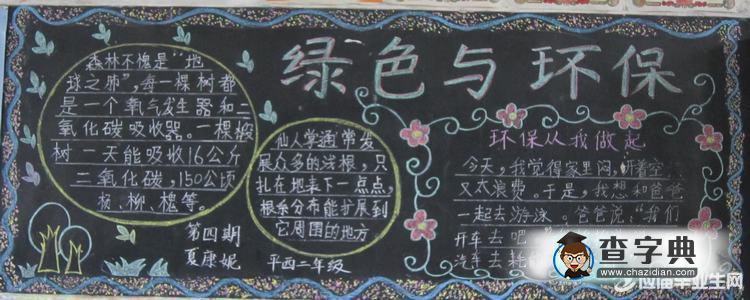 绿色与环保
森林不愧是“地
球之肺”，每一棵树都
是一个氧气发生器和二
氧化碳吸收器。一棵桉
树一天能吸收16公斤
二氧化碳，150公顷
杨、柳、槐等。
第四期
夏康妮
仙人掌通常发
展众多的浅根，只
扎在地表下一点点，
根系分布能扩展到
它周围的地方
平西二年级
环保从我做起
今天，我觉得家里闷，开着空
又太浪费。于是，我想和爸爸
一起去游泳。爸爸说：“我们
开车去吧
汽车去
查字典
www.chazidian.com
应届毕业生网